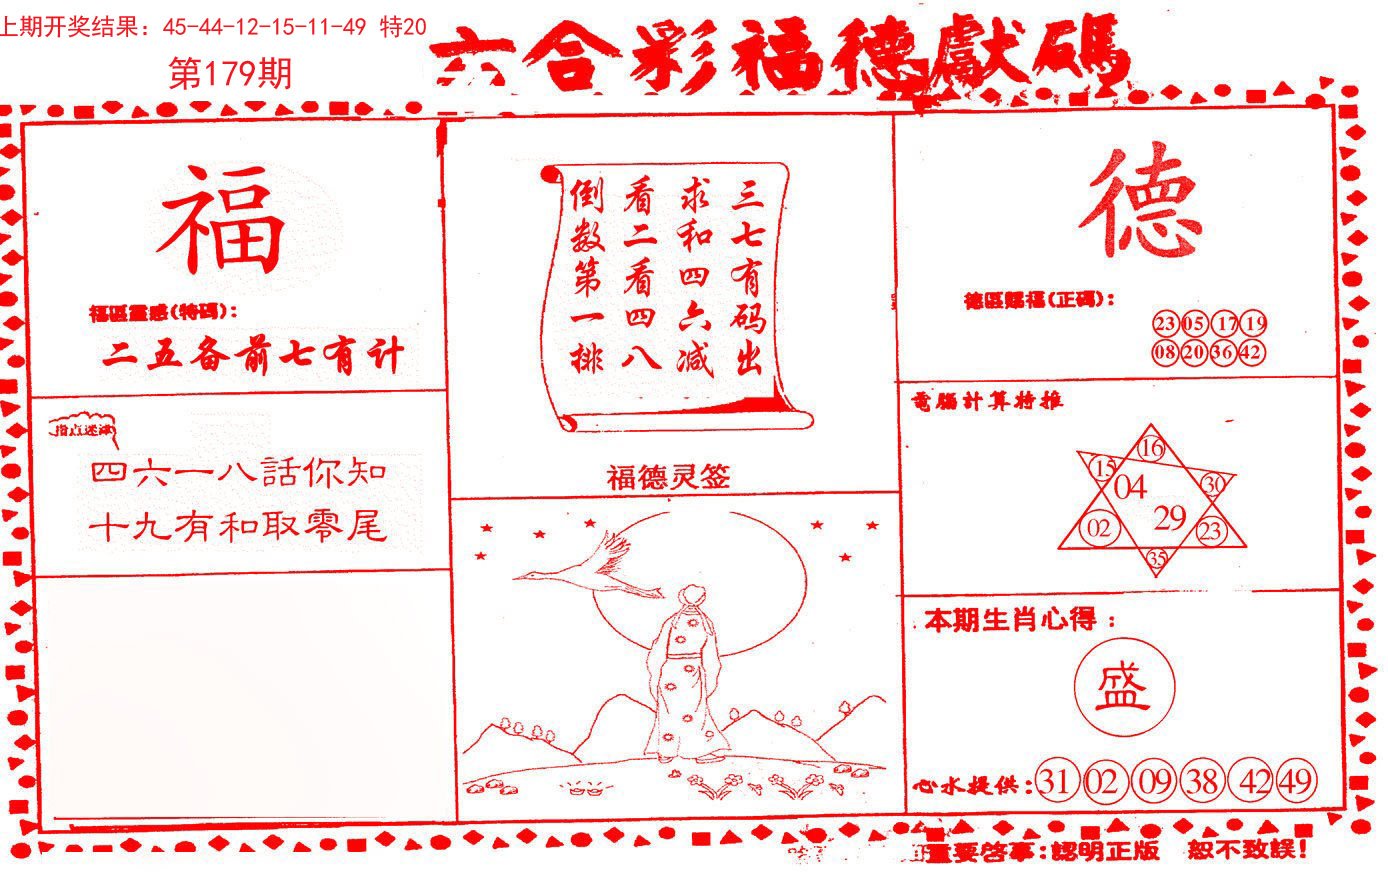 上期开奖结果：45-44-12-15-11-49 特20
第179期
六合彩福德獻碼
福
福區靈感(特碼)：
二五备前七有计
指点迷津
四六一八話你知
十九有和取零尾
三七有码出
求和四六减
看二看四八
倒数第一排
福德灵签
德
德區賜福(正碼)：
23 05 17 19
08 20 36 42
電腦計算特推
16
15 30
04
29
02 23
35
本期生肖心得：
盛
心水提供：31 02 09 38 42 49
重要啓事：認明正版 恕不致誤！